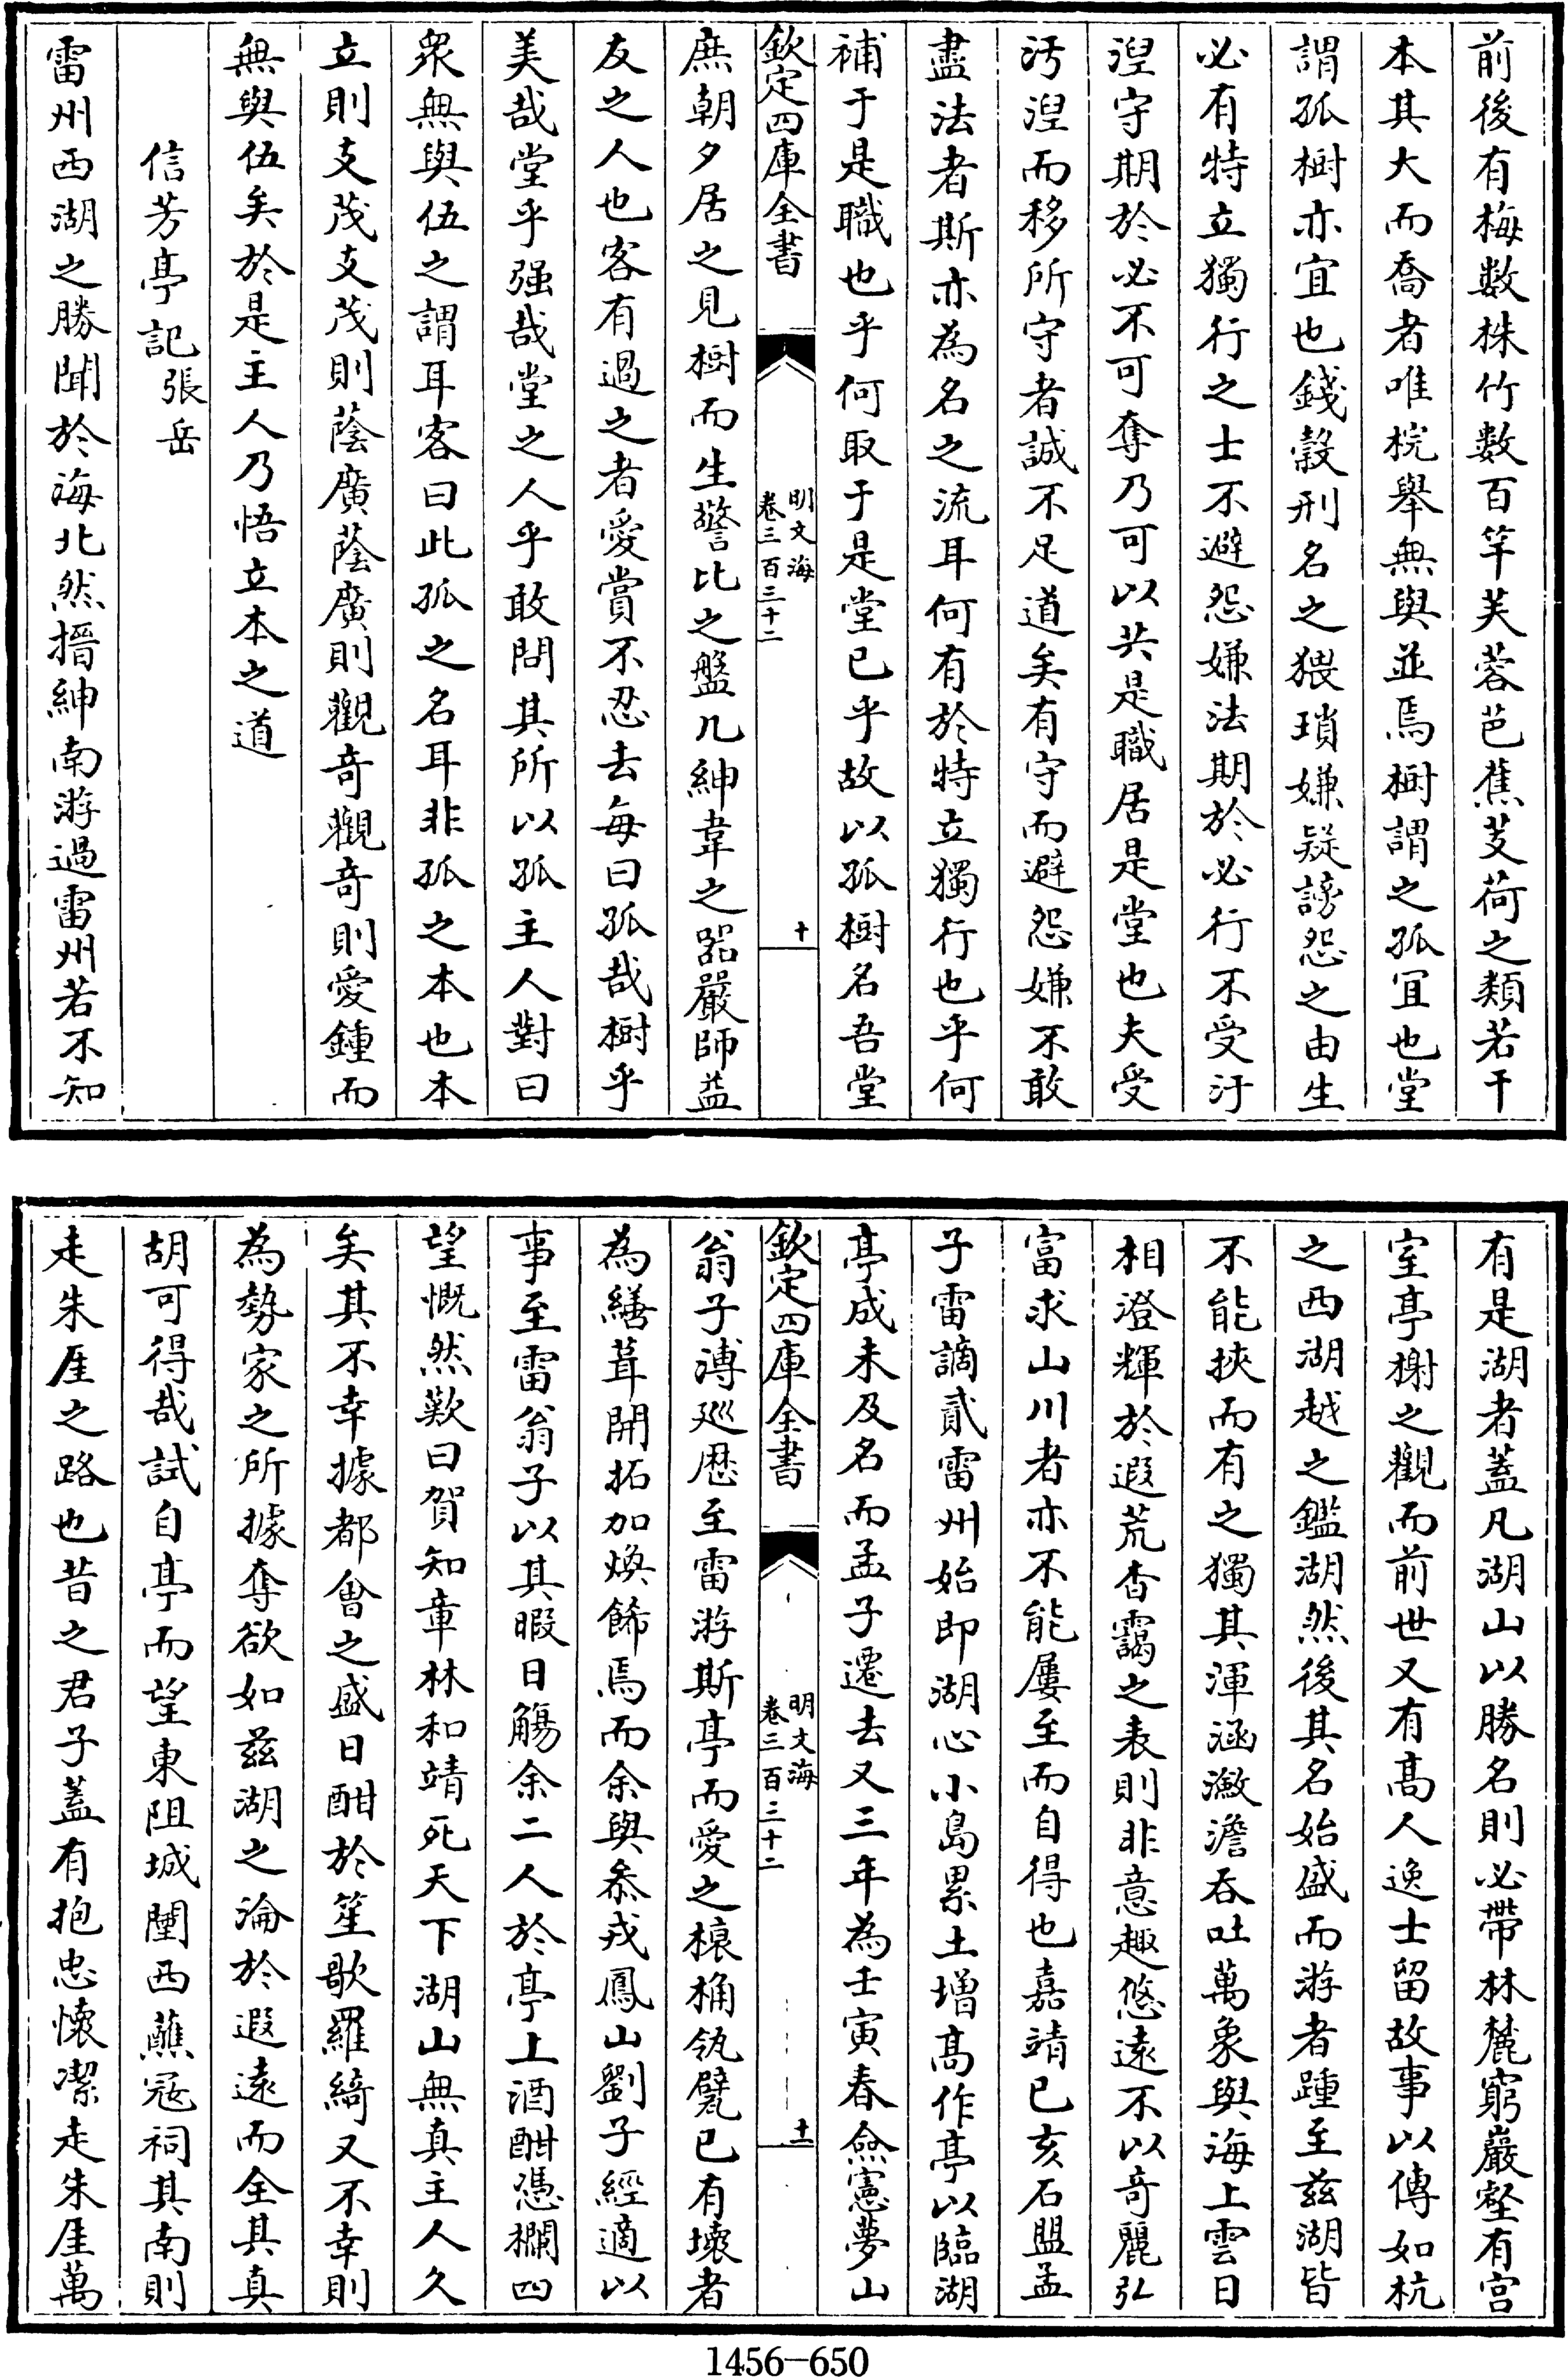 前後有梅數株竹數百竿芙蓉芭蕉芰荷之類若干
本其大而喬者唯梡舉無與並焉樹謂之孤宜也堂
謂孤樹亦宜也錢穀刑名之猥瑣嫌疑謗怨之由生
必有特立獨行之士不避怨嫌法期於必行不受汙
湼守期於必不可奪乃可以共是職居是堂也夫受
汚湼而移所守者誠不足道矣有守而避怨嫌不敢
盡法者斯亦為名之流耳何有於特立獨行也乎何
補于是職也乎何取于是堂已乎故以孤樹名吾堂
欽定四庫全書
明文海
卷三百三十二
十
庶朝夕居之見樹而生警比之盤几紳韋之器嚴師益
友之人也客有過之者愛賞不忍去每曰孤哉樹乎
美哉堂乎强哉堂之人乎敢問其所以孤主人對曰
衆無與伍之謂耳客曰此孤之名耳非孤之本也本
立則支茂支茂則蔭廣蔭廣則觀奇觀奇則愛鍾而
無與伍矣於是主人乃悟立本之道
信芳亭記張岳
雷州西湖之勝聞於海北然搢紳南游過雷州若不知
有是湖者蓋凡湖山以勝名則必帶林麓窮巖壑有宫
室亭榭之觀而前世又有髙人逸士留故事以傳如杭
之西湖越之鑑湖然後其名始盛而游者踵至兹湖皆
不能挾而有之獨其渾涵激澹吞吐萬象與海上雲日
相澄輝於遐荒杳靄之表則非意趣悠遠不以奇麗弘
富求山川者亦不能屢至而自得也嘉靖已亥石盟孟
子雷謫貳雷州始即湖心小島累土增髙作亭以臨湖
亭成未及名而孟子遷去又三年為壬寅春僉憲夢山
欽定四庫全書
明文海
卷三百三十二
十一
翁子溥廵厯至雷游斯亭而愛之榱桷瓴甓已有壊者
為繕葺開拓加煥飾焉而余與叅戎鳳山劉子經適以
事至雷翁子以其暇日觴余二人於亭上酒酣憑欄四
望慨然歎曰賀知章林和靖死天下湖山無真主人久
矣其不幸據都會之盛日酣於笙歌羅綺又不幸則
為勢家之所據奪欲如兹湖之淪於遐遠而全其真
胡可得哉試自亭而望東阻城闉西蘸冦祠其南則
走朱厓之路也昔之君子蓋有抱忠懷潔走朱厓萬
1456—650